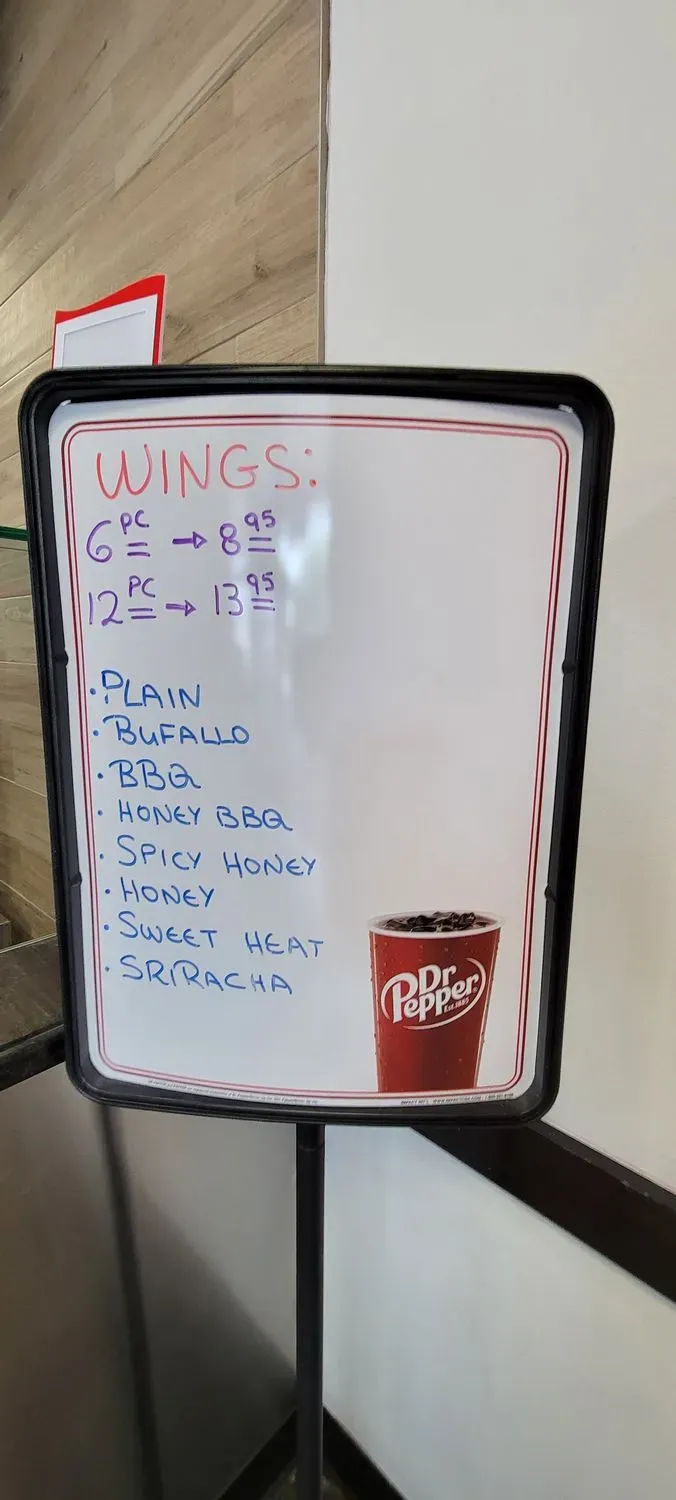 WINGS:
6 PC → 8 95
12 PC → 13 95
• PLAIN
• BUFALLO
• BBQ
• HONEY BBQ
• SPICY HONEY
• HONEY
• SWEET HEAT
• SRIRACHA
Dr
Pepper
Est. 1885